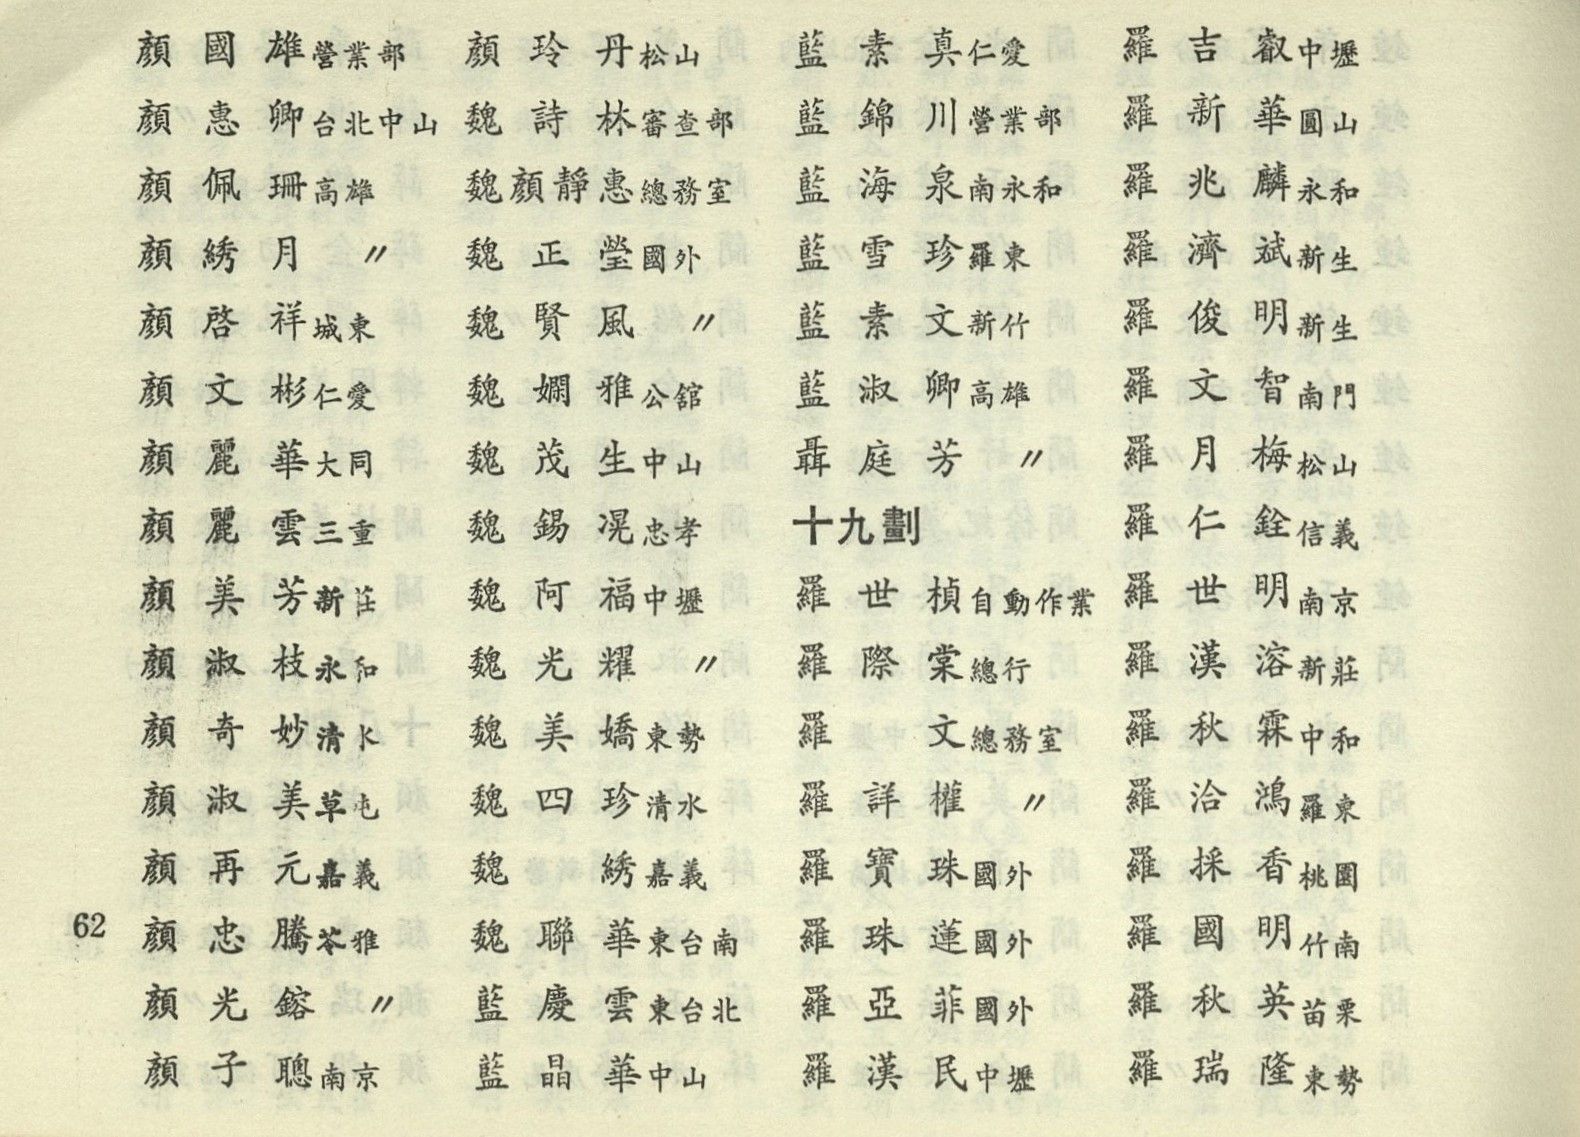 顏國雄營業部
顏惠卿台北中山
顏佩珊高雄
顏綉月〃
顏啓祥城東
顏文彬仁愛
顏麗華大同
顏麗雲三重
顏美芳新莊
顏淑枝永和
顏奇妙清水
顏淑美草屯
顏再元嘉義
顏忠騰苓雅
顏光鎔〃
顏子聰南京
顏玲丹松山
魏詩林審查部
魏顏靜惠總務室
魏正瑩國外
魏賢風〃
魏嫻雅公舘
魏茂生中山
魏錫滉忠孝
魏阿福中壢
魏光耀〃
魏美嬌東勢
魏四珍清水
魏綉嘉義
魏聯華東台南
藍慶雲東台北
藍晶華中山
藍素真仁愛
藍錦川營業部
藍海泉南永和
藍雪珍羅東
藍素文新竹
藍淑卿高雄
聶庭芳〃
十九劃
羅世楨自動作業
羅際棠總行
羅文總務室
羅詳權〃
羅寶珠國外
羅珠蓮國外
羅亞菲國外
羅漢民中壢
羅吉叡中壢
羅新華圓山
羅兆麟永和
羅濟斌新生
羅俊明新生
羅文智南門
羅月梅松山
羅仁銓信義
羅世明南京
羅漢溶新莊
羅秋霖中和
羅洽鴻羅東
羅採香桃園
羅國明竹南
羅秋英苗栗
羅瑞隆東勢
62